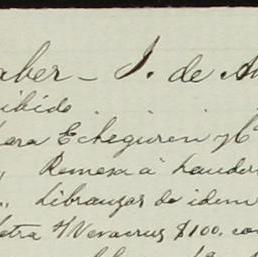 aber – J. de A
ibido
era Echeguren y Cª
" Remesa á
" Libranzas de idem
etra s/ Veracruz $100. co